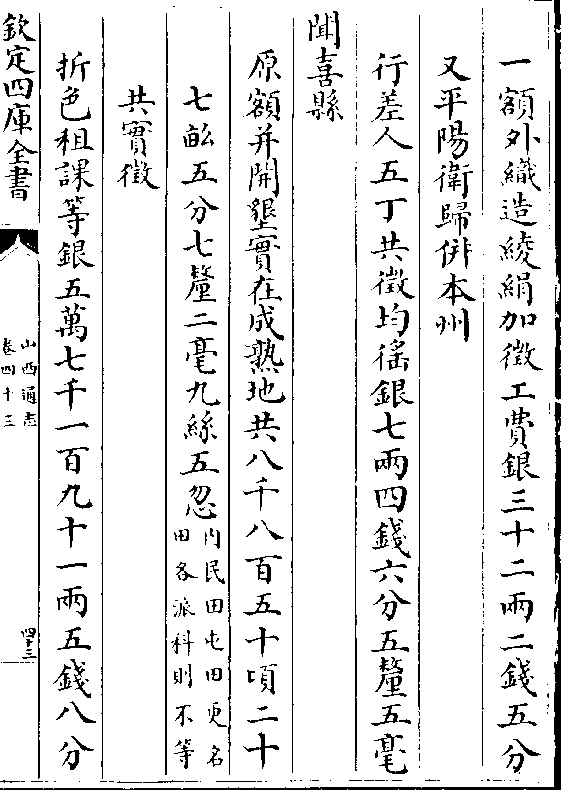 一額外織造綾絹加徵工費銀三十二兩二錢五分
又平陽衛歸併本州
行差人五丁共徵均徭銀七兩四錢六分五釐五毫
聞喜縣
原額并開墾實在成熟地共八千八百五十頃二十
七畝五分七釐二毫九絲五忽
内民田屯田更名
田各派科則不等
共實徵
折色租課等銀五萬七千一百九十一兩五錢八分
欽定四庫全書
山西通志
卷四十三
四十三